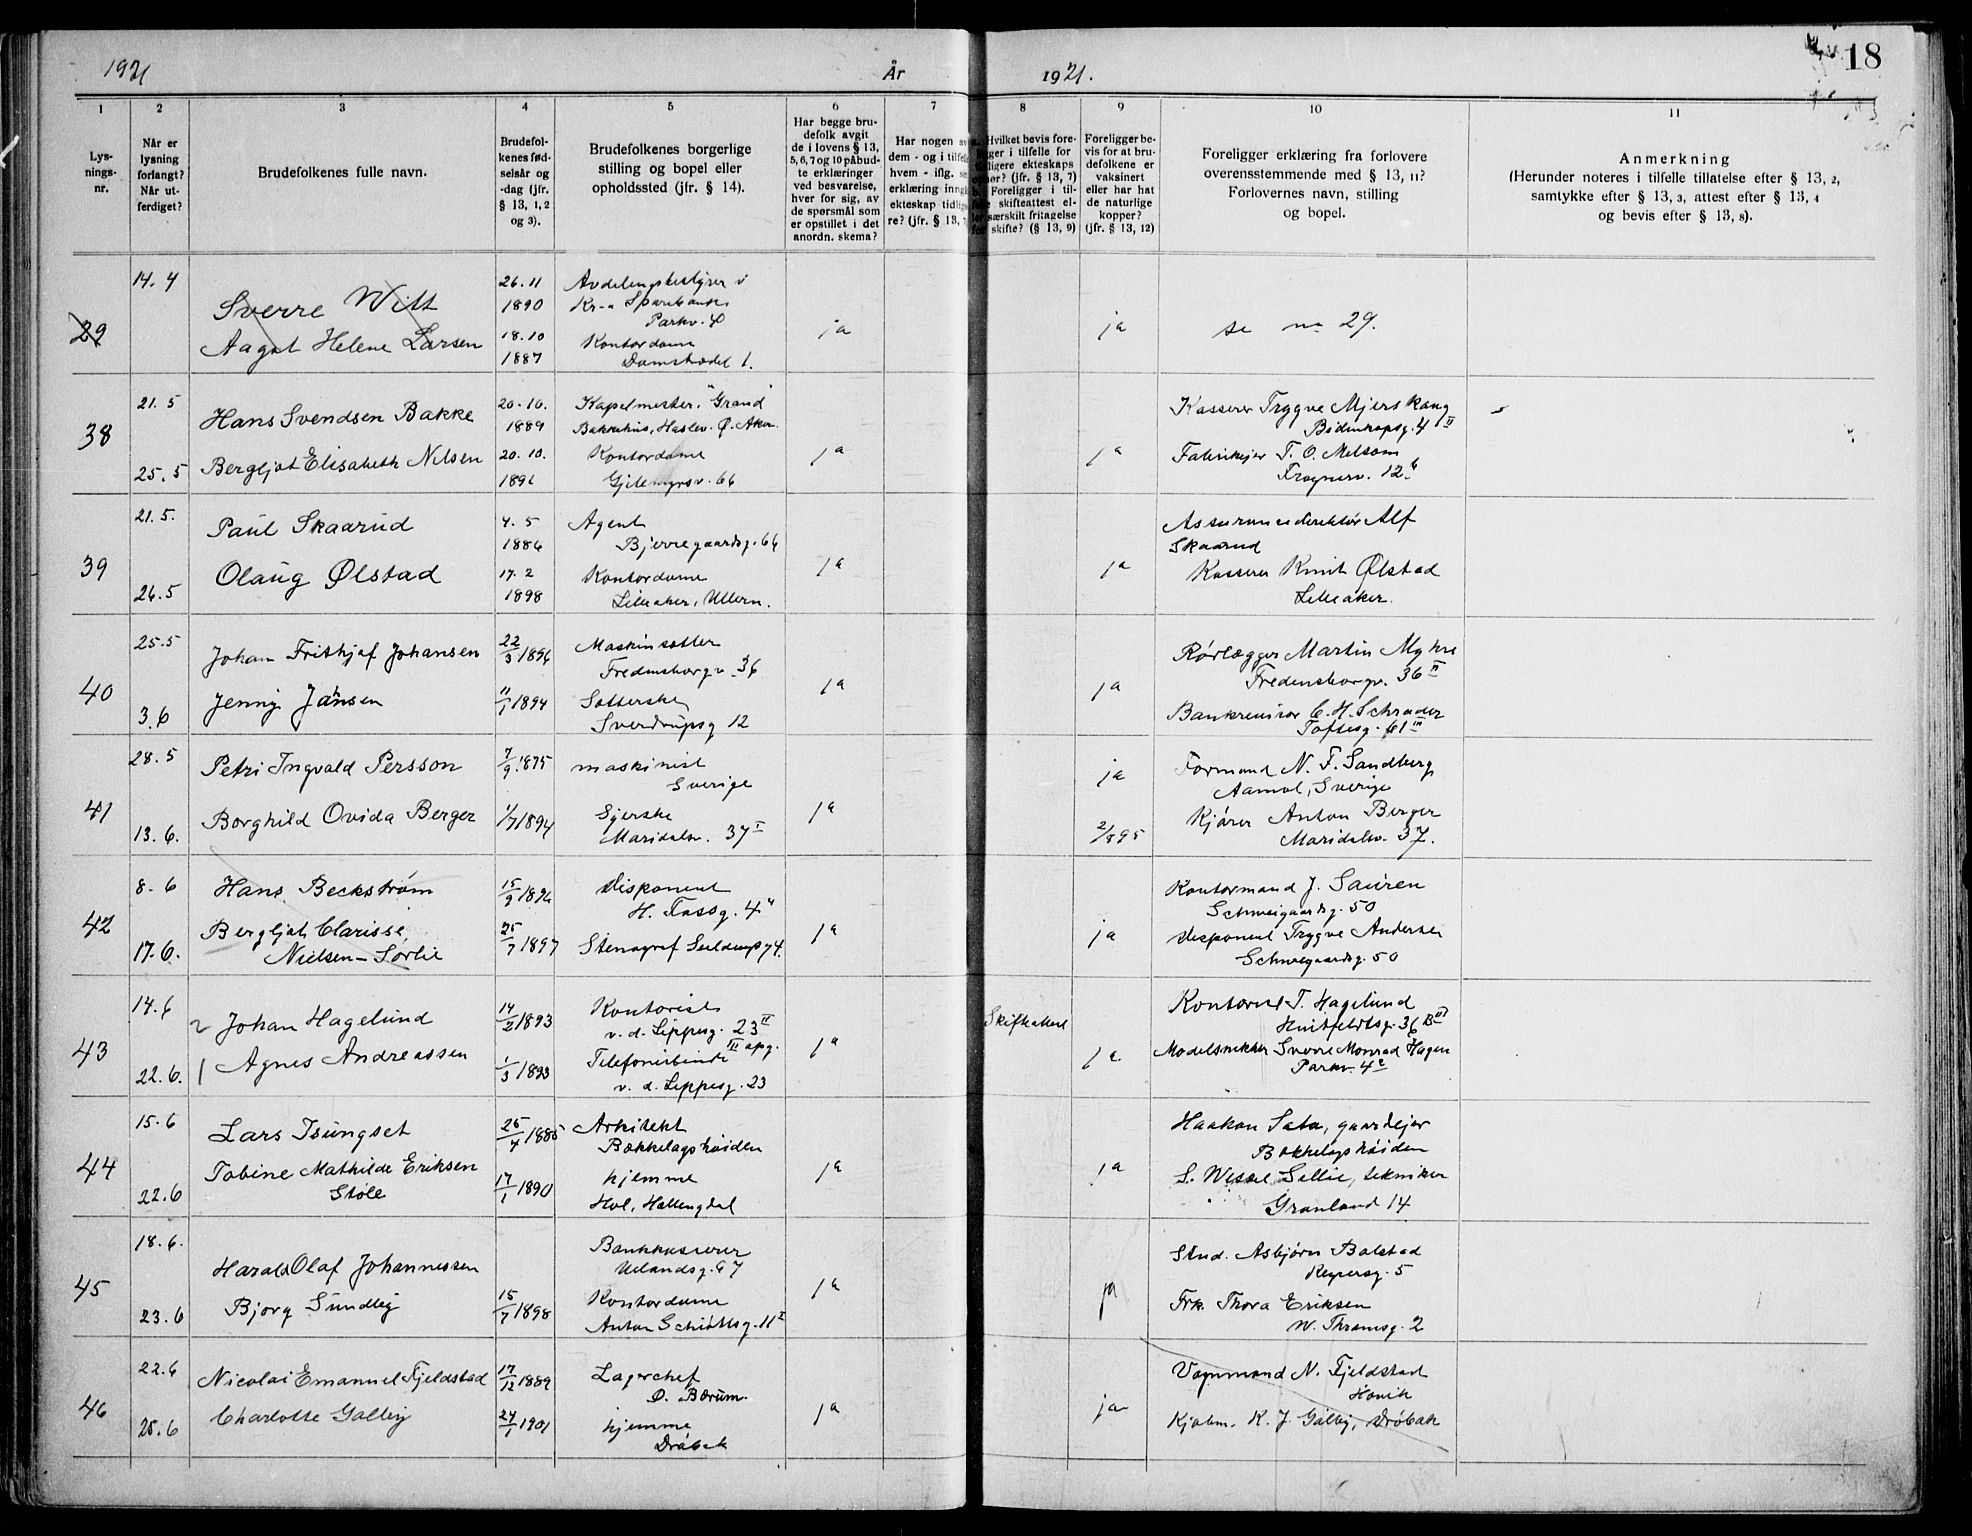 1921 År 1921. 18
1 2 3 4 5 6 7 8 9 10 11
Lys-
nings-
nr.
Når er
lysning
forlangt?
Når ut-
ferdiget?
Brudefolkenes fulle navn.
Brudefol-
kenes fød-
selsår og
-dag (jfr.
§ 13, 1, 2
og 3).
Brudefolkenes borgerlige
stilling og bopel eller
opholdssted (jfr. § 14).
Har begge bru-
defolk avgit
de i lovens § 13,
5, 6, 7 og 10 påbud-
te erklæringer
ved besvarelse,
hver for sig, av
de spørsmål som
er opstillet i det
anordn. skema?
Har nogen av
dem - og i tilfelle
hvem - iflg.
erklæring inngå
ekteskap tidlige-
re? (jfr. § 13, 7
Hvilket bevis fore-
ligger i tilfelle for
tidligere ekteskaps
ophør? (jfr. § 13, 7)
Foreligger i til-
felle skifteattest el-
ler særskilt fritagelse
for skifte? (§ 13, 9)
Foreligger be-
vis for at bru-
defolkene er
vaksinert
eller har hat
de naturlige
kopper?
(jfr. § 13, 12)
Foreligger erklæring fra forlovere
overensstemmende med § 13, 11?
Forlovernes navn, stilling
og bopel.
Anmerkning
(Herunder noteres i tilfelle tillatelse efter § 13, 2,
samtykke efter § 13, 3, attest efter § 13, 4
og bevis efter § 13, 8).
29
14.4
Sverre Witt
Aagot Helene Larsen
26.11
1890
18.10
1887
Avdelingsbestyrer i
Kr-a Sparebank
Parkv. 4
Kontordame
Damstrædet 1.
ja
ja
se no 29.
38
21.5
25.5
Hans Svendsen Bakke
Bergljot Elisabeth Nilsen
20.10.
1889
20.10.
Kapelmester, "Grand"
Bakkehus, Haslev. Ø. Aker.
Kontordame
Gjetemyrsv. 66
ja
ja
Kasserer Trygve Mjerskaug
4 II
Fabrikeier T. O. Melsom
Frognerv. 12 b
39
21.5.
26.5
Paul Skaarud
Olaug Ølstad
4.5
1886
17.2
1898
Agent
Bjerregaardsg. 64
Kontordame
Lilleaker, Ullern.
ja
ja
Assurancedirektør Alf
Skaarud
Kasserer Knut Ølstad
Lilleaker.
40
25.5
3.6
Johan Frithjof Johansen
Jenny Jansen
22/3 1896
11/1 1894
Maskinsætter
Fredensborgv. 36
Sætterske
Sverdrupsg 12
ja
ja
Rørlægger Martin Myhre
Fredensborgv. 36 II
Bankrevisor C. H. Schrader
Toftesg. 61 III
41
28.5
13.6.
Petri Ingvald Persson
Borghild Ovida Berger
7/9 1875
1/7 1894
maskinist
Sverige
Syerske
Maridalsv. 37 I
ja
ja
2/8 95
Formand N. F. Sandberg
Aamol, Sverige
Kjører Anton Berger
Maridalsv. 37.
42
8.6
17.6.
Hans Beckstrøm
Bergljot Clarisse
Nielsen-Sørlie
15/9 1896
25/7 1897
disponent
H. Fossg. 4 II
Stenograf Seilduksg 74.
ja
ja
Kontormand J. Sauren
Schweigaardsg. 50
disponent Trygve Andersen
Schweigaardsg. 50
43
14.6
22.6.
2 Johan Hagelund
1 Agnes Andreassen
14/2 1893
1/3 1893
Kontorist
v. d. Lippesg. 23 II
III opg.
Telefonistinde
v. d. Lippesg. 23
ja
Skifteattest
ja
Kontorist T. Hagelund
Huitfeldtsg. 36 B III
Modelsnekker Sverre Monrad Hagen
Parkv. 4
44
15.6
22.6
Lars Tsungset
Tobine Mathilde Eriksen
Støle
25/4 1885
17/1 1890
Arkitekt
Bækkelagshøiden
hjemme
Hol, Hallingdal
ja
ja
Haakon Sata, gaardejer
Bækkelagshøiden
S. Wessel Lellie, tekniker
Grønland 14
45
18.6.
23.6
Harald Olaf Johannessen
Bjorg Sundby
15/7 1898
Bankkasserer
Uelandsg. 67
Kontordame
Anton Schiøttsg. 11 I
ja
ja
Stud. Asbjørn Bolstad
Keysersg. 5
Frk. Thora Eriksen
W. Thranesg. 2
46
22.6
25.6
Nicolai Emanuel Fjeldstad
Charlotte Galby
17/12 1889
24/1 1901
Lagerchef
Ø. Bærum
hjemme
Drøbak
ja
ja
Vognmand N. Fjeldstad
Høvik
Kjøbm. K. J. Galby, Drøbak